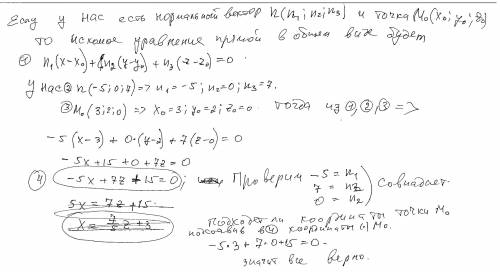 Если у нас есть нормальный вектор n(n₁; n₂; n₃) и точка M₀(x₀; y₀; z₀)
то искомое уравнение прямой в общем виде будет
① n₁(x-x₀) + n₂(y-y₀) + n₃(z-z₀) = 0
у нас ② n(-5; 0; 7) => n₁ = -5; n₂ = 0; n₃ = 7.
③ M₀(3; 2; 0) => x₀ = 3; y₀ = 2; z₀ = 0. тогда из ①, ②, ③ =>
-5(x-3) + 0·(y-2) + 7(z-0) = 0
-5x + 15 + 0 + 7z = 0
④ -5x + 7z + 15 = 0; Проверим -5 = n₁
7 = n₂
0 = n₂
совпадает.
5x = 7z + 15
x = 7/5 z + 3
подходят ли координаты точки M₀
в ④ координаты M₀.
-5·3 + 7·0 + 15 = 0
значит все верно.